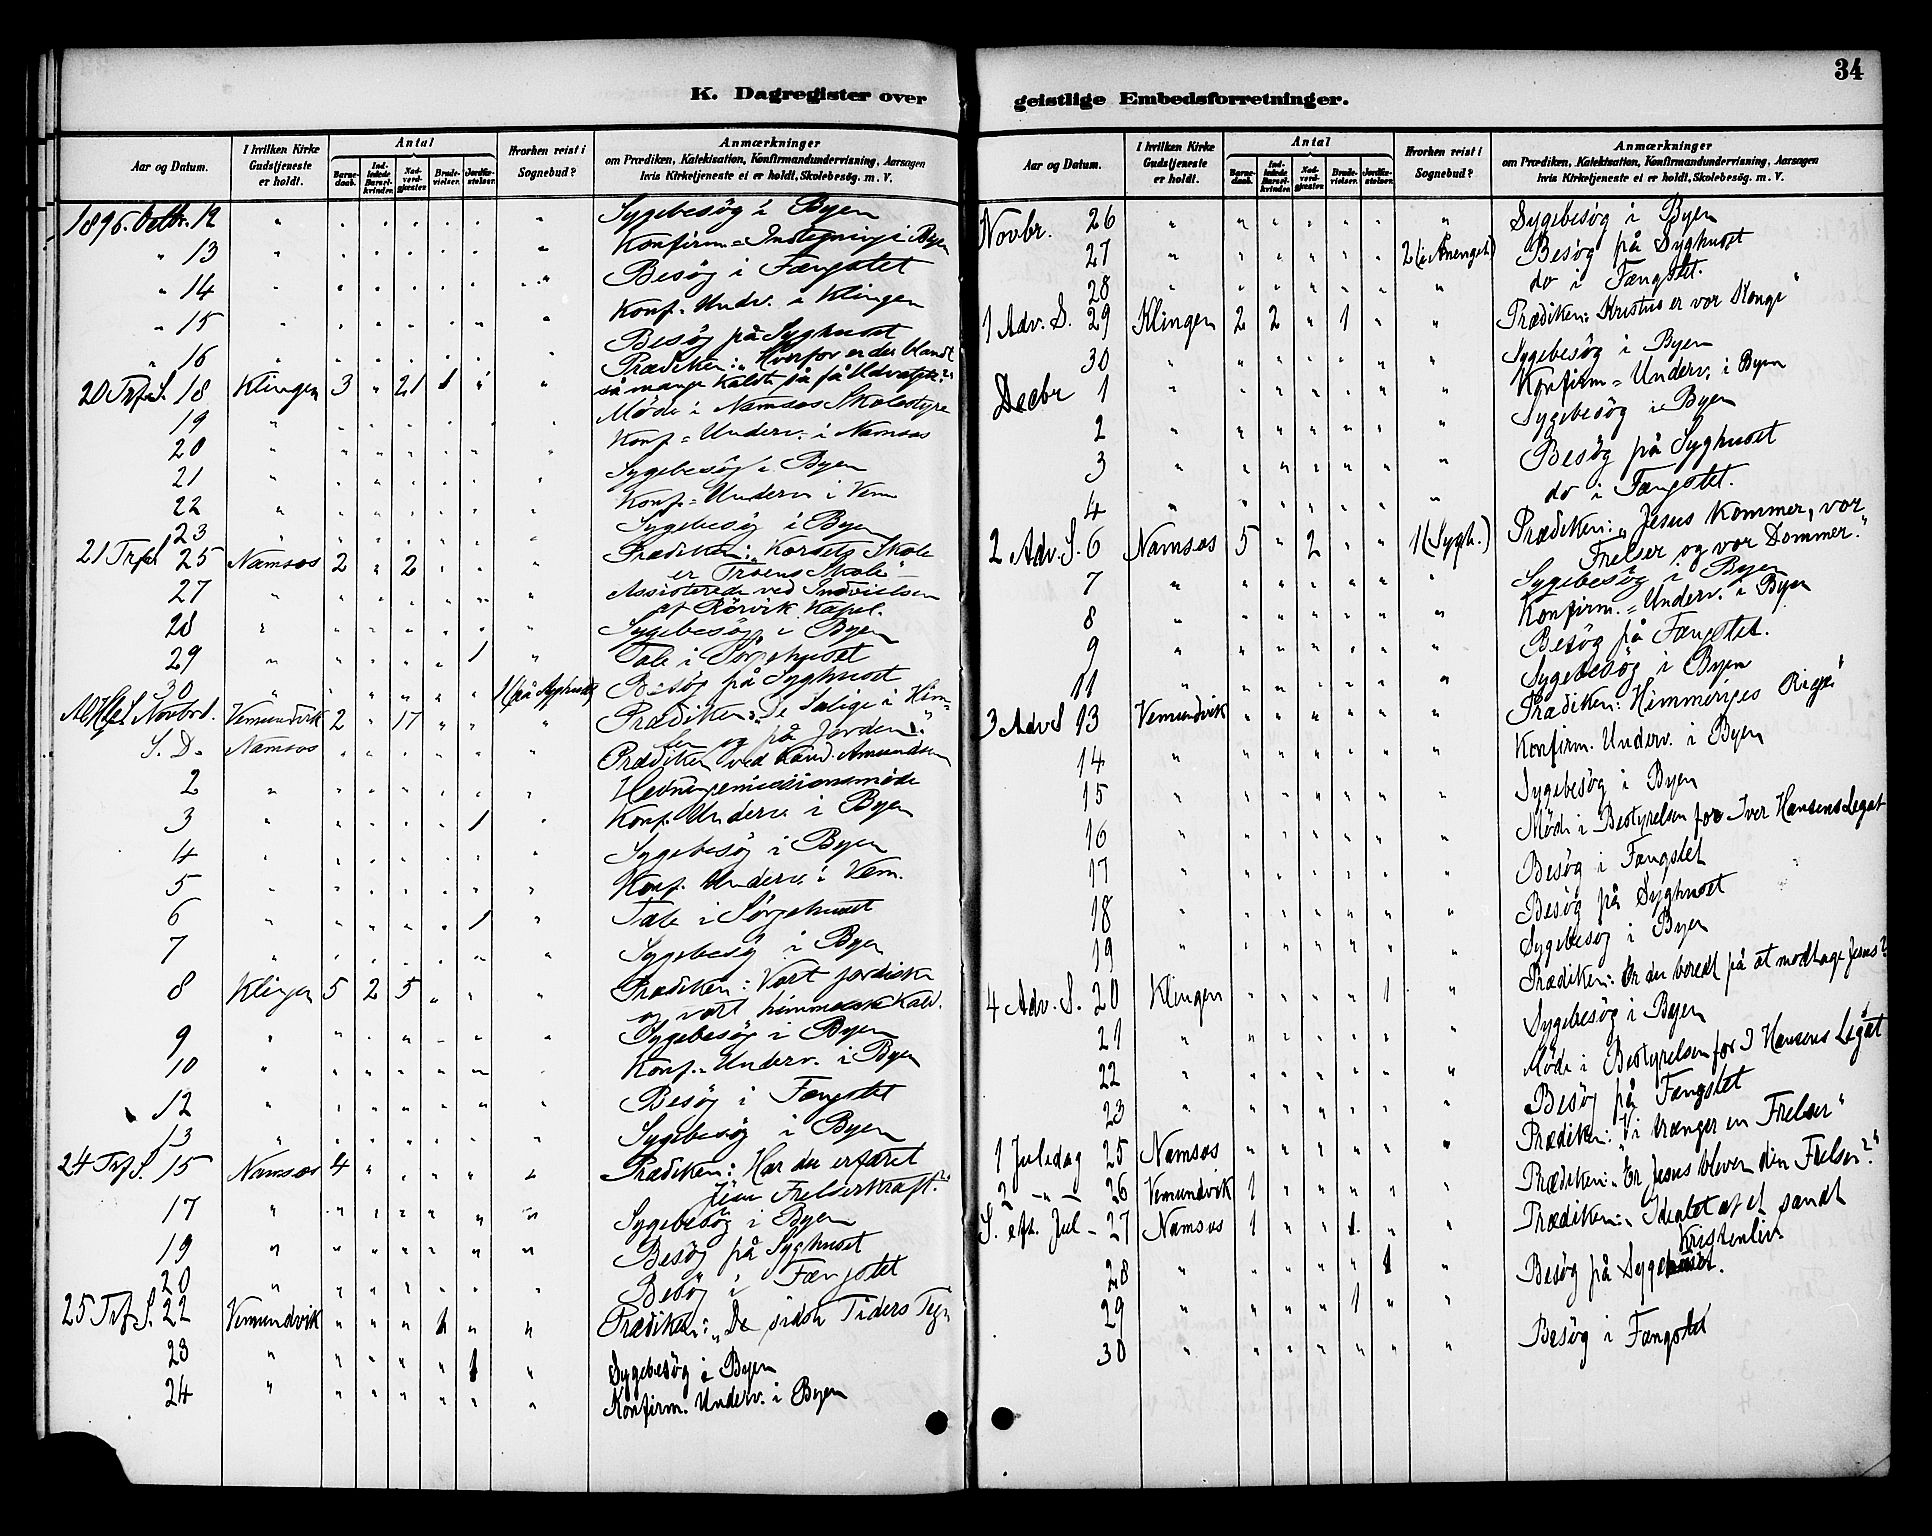 34
K. Dagregister over geistlige Embedsforretninger.
Aar og Datum. I hvilken Kirke Gudstjeneste er holdt. Antal Barnedaab. Indledede Barselkvinder. Nadverdgjæster. Brudevielser. Jordfæstelser. Hvorhen reist i Sognebud? Anmærkninger om Prædiken, Katekisation, Konfirmandundervisning, Aarsagen hvis Kirketjeneste ei er holdt, Skolebesøg. m. V.
1896. Octbr. 12 " " " " " " " Sygebesøg i Byen
" 13 " " " " " " " Konfirm = Indtegning i Byen
" 14 " " " " " " " Besøg i Fængslet
" 15 " " " " " " " Konf. Underv. i Klingen
" 16 " " " " " " " Besøg på Syghuset
20 Trf. S. 18 Klingen 3 " 21 1 " " Prædiken: "Hvorfor er der blandt
så mange Kaldte så få Udvalgte?"
19 " " " " " " " Møde i Namsos Skolestyre
20 " " " " " " " Konf = Underv. i Namsos
21 " " " " " " " Sygebesøg i Byen
22 " " " " " " " Konf. = Underv i Vem
23 " " " " " " " Sygebesøg i Byen
21 Trf. S. 25 Namsos 2 " 2 " " " Prædiken: "Korsets Skole
er Troens Skole"
27 " " " " " " " Assisterede ved Indvielsen
af Rörvik Kapel.
28 " " " " " " " Sygebesøg i Byen
29 " " " " " 1 " Tale i Sørgehuset
30 " " " " " " 1 (på Syghuset) Besøg på Syghuset
Novbr 1. Vemundvik 2 " 17 " " " Prædiken: "De Salige i Him-
len og på Jorden".
S. D. Namsos " " " " " " Prædiken ved Cand. Amundsen
2 " " " " " " " Hedningemissionsmøde
3 " " " " " 1 " Konf. Underv i Byen
4 " " " " " " " Sygebesøg i Byen
5 " " " " " " " Konf. Underv i Vem.
6 " " " " " 1 " Tale i Sørgehuset
7 " " " " " " " Sygebesøg i Byen
8 Klingen 5 2 5 " " " Prædiken: Vort jordiske
og vort himmelske Kald.
9 " " " " " " " Sygebesøg i Byen
10 " " " " " " " Konf. Underv. i Byen
12 " " " " " " " Besøg i Fængslet
13 " " " " " " " Sygebesøg i Byen
24 Trf. S. 15 Namsos 4 " " " " " Prædiken: Har du erfaret
Jesu Frelserkraft?"
17 " " " " " " " Sygebesøg i Byen
19 " " " " " " " Besøg på Syghuset
20 " " " " " " " Besøg i Fængslet
25 Trf. S. 22 Vemundvik " " " 1 " " Prædiken: "De sidste Tiders Tegn
23 " " " " " 1 " Sygebesøg i Byen
24 " " " " " " " Konfirm. Underv. i Byen
Aar og Datum. I hvilken Kirke Gudstjeneste er holdt. Antal Barnedaab. Indledede Barselkvinder. Nadverdgjæster. Brudevielser. Jordfæstelser. Hvorhen reist i Sognebud? Anmærkninger om Prædiken, Katekisation, Konfirmandundervisning, Aarsagen hvis Kirketjeneste ei er holdt, Skolebesøg. m. V.
Novbr. 26 " " " " " " " Sygebesøg i Byen
27 " " " " " " 2 Besøg på Syghuset
28 " " " " " " " do i Fængslet.
1 Adv. S. 29 Klingen 2 2 " 1 " " Prædiken: Kristus er vor Konge"
30 " " " " " " " Sygebesøg i Byen
Decbr 1 " " " " " " " Konfirm = Underv. i Byen
2 " " " " " " " Sygebesøg i Byen
3 " " " " " " " Besøg på Syghuset
4 " " " " " " " do i Fængslet.
2 Adv. S. 6 Namsos 5 " 2 " " 1 (Sygh.) Prædiken: "Jesus Kommer, vor
Frelser og vor Dommer."
7 " " " " " " " Sygebesøg i Byen
8 " " " " " " " Konfirm. = Underv. i Byen
9 " " " " " " " Besøg på Fængslet.
11 " " " " " " " Sygebesøg i Byen
3 Adv S 13 Vemundvik " " " " " " Prædiken: Himmeriges Rige"
14 " " " " " " " Konfirm. Underv. i Byen
15 " " " " " " " Sygebesøg i Byen
16 " " " " " " " Møde i Bestyrelsen for Iver Hansens Legat
17 " " " " " " " Besøg i Fængslet
18 " " " " " " " Besøg på Syghuset
19 " " " " " " " Sygebesøg i Byen
4 Adv. S. 20 Klingen " " " " 1 " Prædiken: Er du beredt på at modtage Jesus?
21 " " " " " " " Sygebesøg i Byen
22 " " " " " " " Møde i Bestyrelsen for I Hansens Legat
23 " " " " " " " Besøg på Fængslet
1 Juledag 25 Namsos " " " " " " Prædiken: "Vi trænger en Frelser"
2 - " - 26 Vemundvik 1 " " " " " Prædiken: "Er Jesus bleven din Frelser?"
S. eft. Jul - 27 Namsos 1 " " 1 " " Prædiken: "Idealet af et sandt
Kristenliv
28 " " " " " 1 " Besøg på Sygehuset.
29 " " " " 1 " "
30 " " " " " " " Besøg i Fængslet